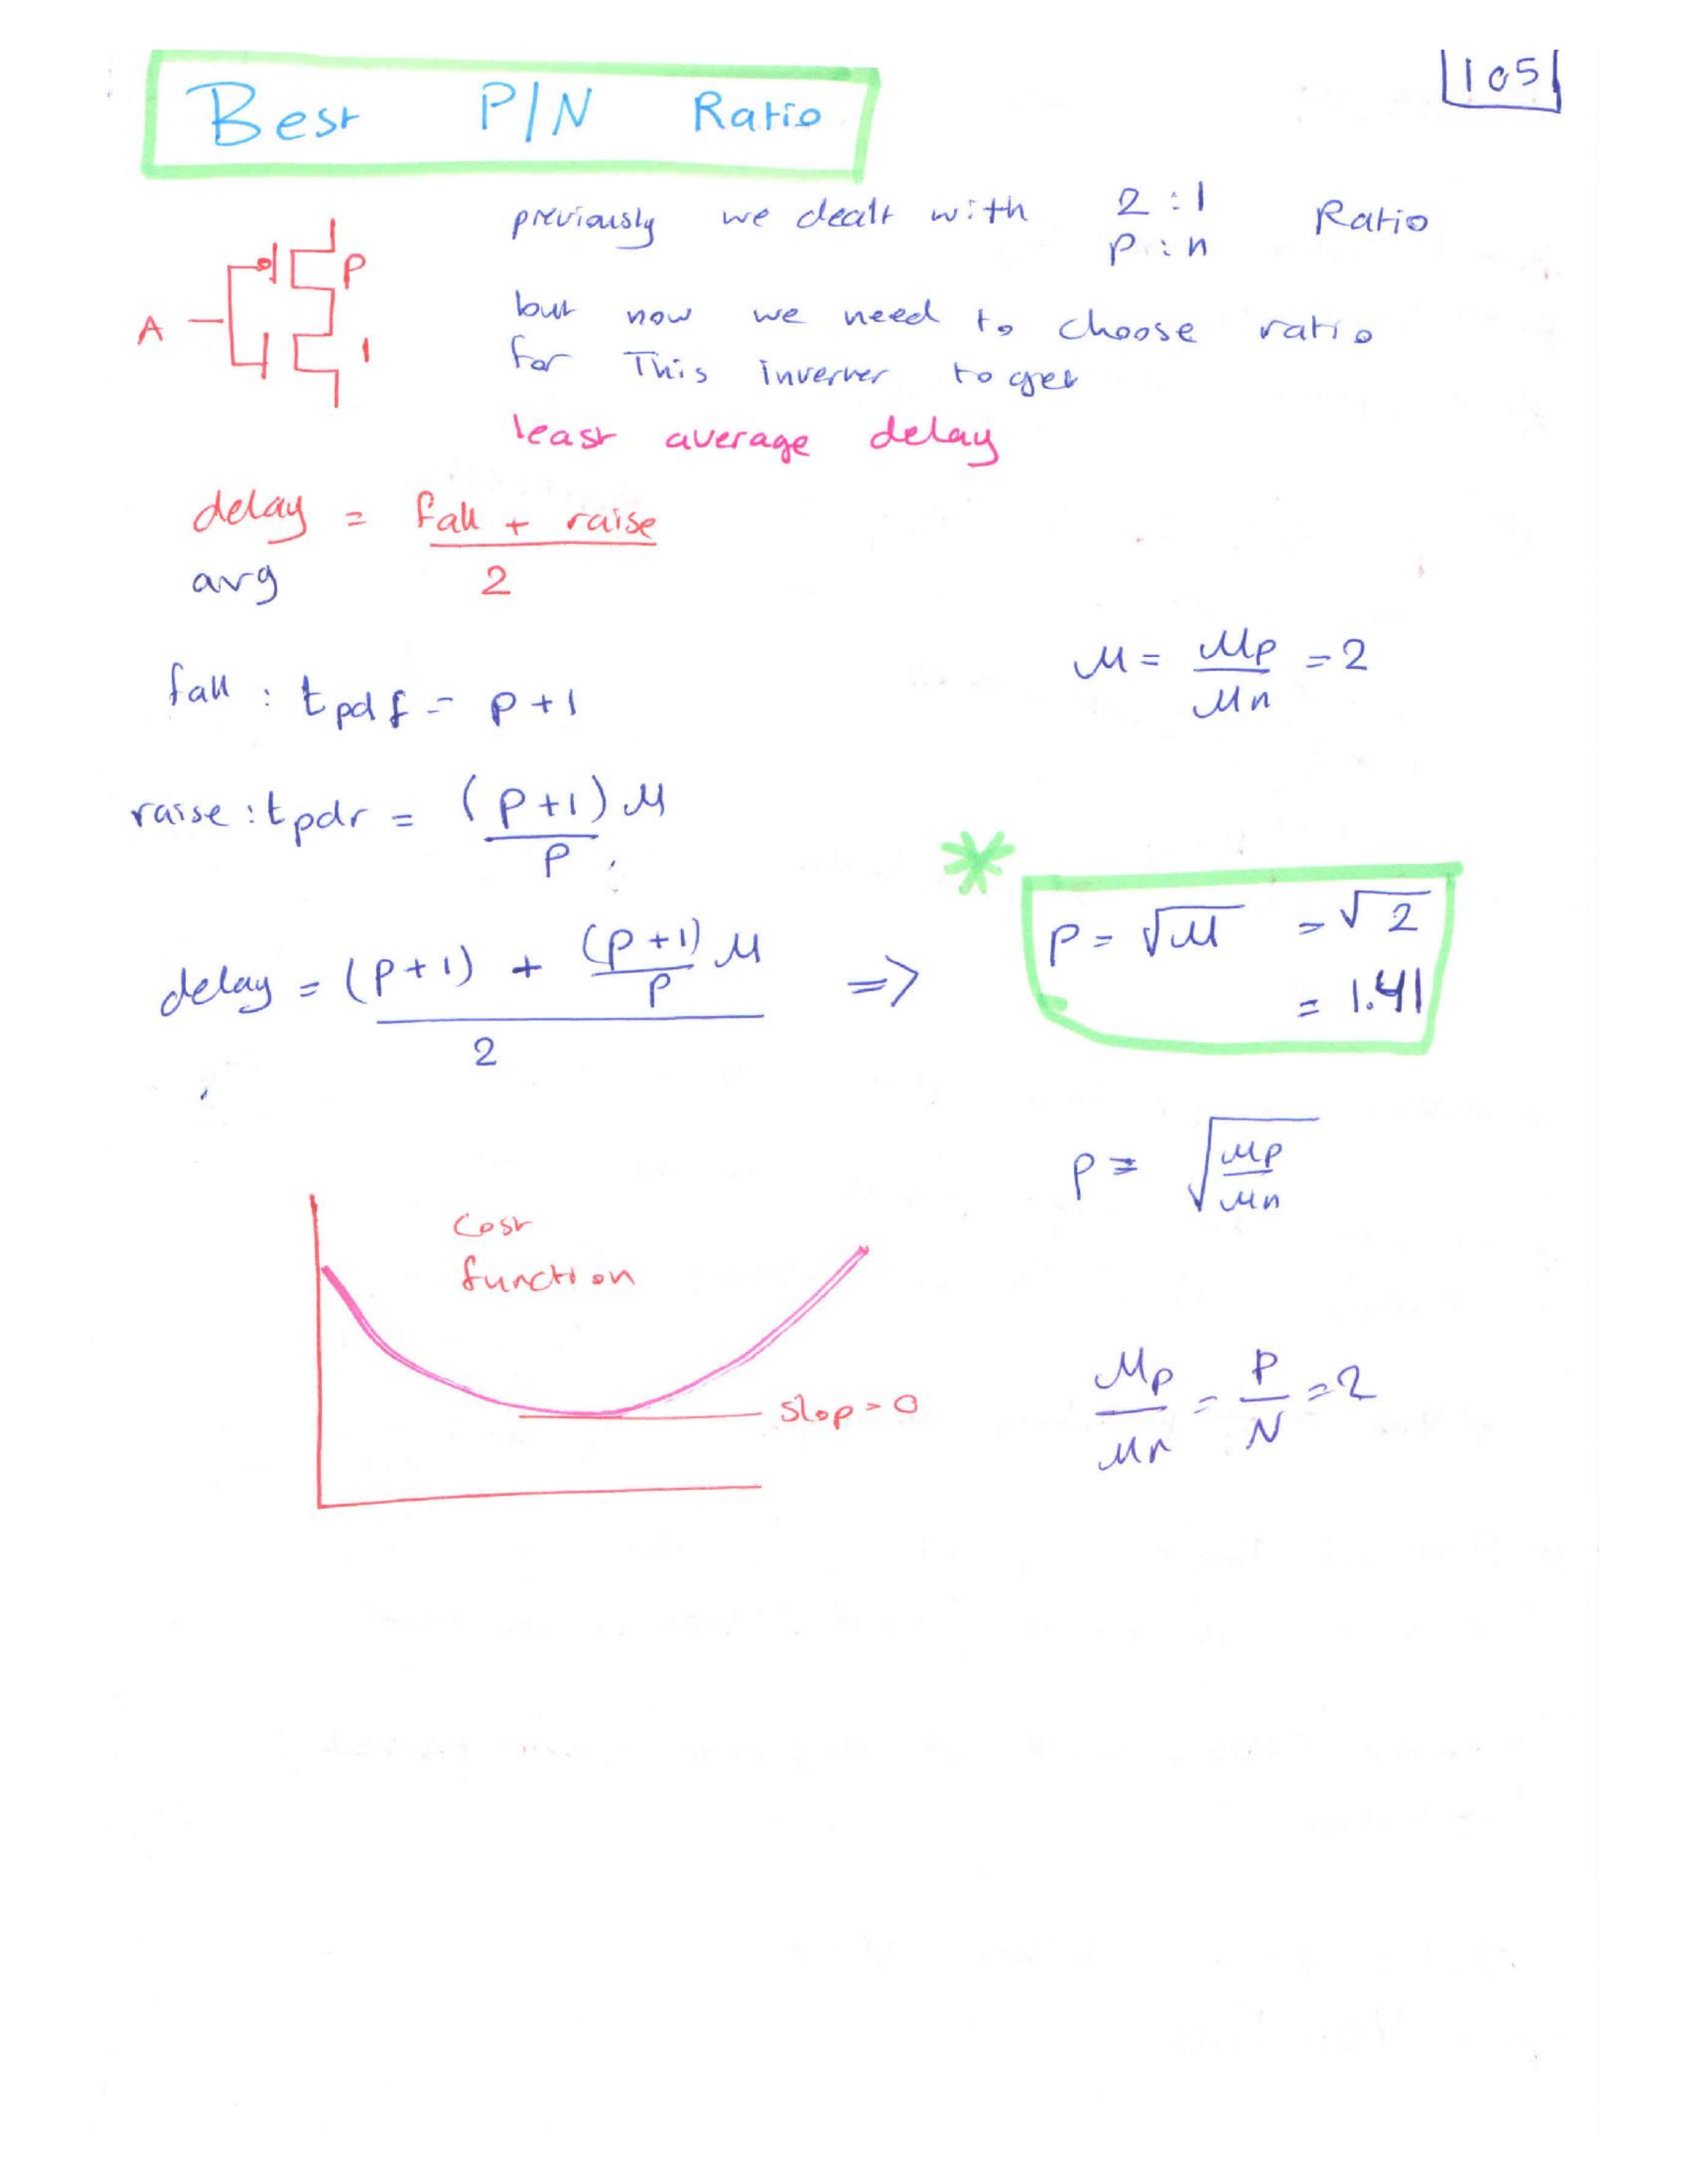 105
Best P/N Ratio
previously we dealt with 2:1 Ratio
p:n
but now we need to choose ratio
for This inverter to get
least average delay
A
P
1
delay = fall + raise
avg 2
μ = μp/μn = 2
fall : tpdf = p+1
raise : tpdr = (p+1)μ/p
delay = (p+1) + (p+1)/p μ =>
2
*
p = √μ = √2
= 1.41
p = √μp/μn
Cost
function
slop = 0
μp/μn = P/N = 2